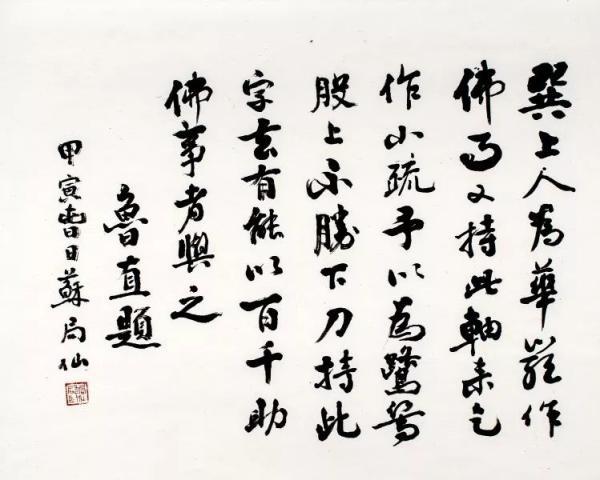 巽上人為華嚴作
佛事又持此軸来乞
作小疏予以為鷺鷥
股上不勝下刀持此
字去有能以百千助
佛事者與之
魯直題
甲寅春日蘇局仙